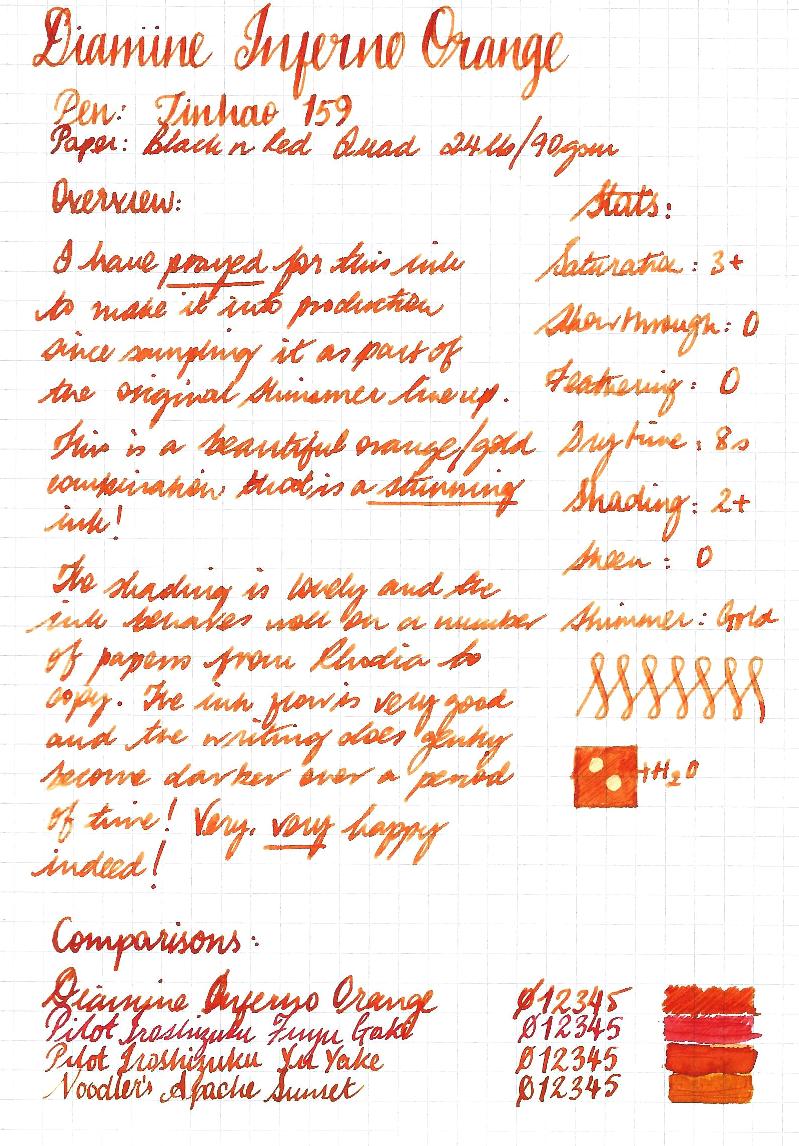 Diamine Inferno Orange
Pen: Jinhao 159
Paper: Black n Red Quad 24lb/90gsm
Overview:
I have prayed for this ink
to make it into production
since sampling it as part of
the original Shimmer line up.
This is a beautiful orange/gold
combination that is a stunning
ink!
The shading is lovely and the
ink behaves well on a number
of papers from Rhodia to
copy. The ink flow is very good
and the writing does gently
become darker over a period
of time! Very, very happy
indeed!
Stats:
Saturation: 3+
Showthrough: 0
Feathering: 0
Dry time: 8s
Shading: 2+
Sheen: 0
Shimmer: Gold
+H2O
Comparisons:
Diamine Inferno Orange Ø12345
Pilot Iroshizuku Fuyu Gaki Ø12345
Pilot Iroshizuku Yu Yake Ø12345
Noodler's Apache Sunset Ø12345